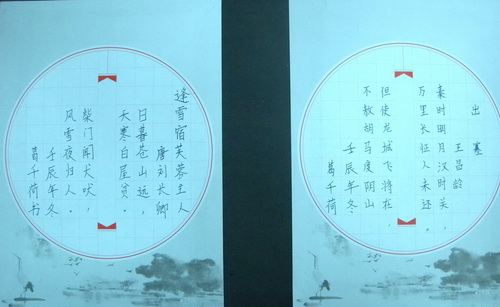 逢雪宿芙蓉主人
唐刘长卿
日暮苍山远，
天寒白屋贫。
柴门闻犬吠，
风雪夜归人。
壬辰年冬
葛千荷书
出塞
王昌龄
秦时明月汉时关，
万里长征人未还。
但使龙城飞将在，
不教胡马度阴山
壬辰年冬
葛千荷